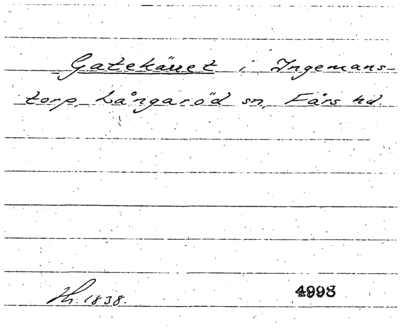 Gatekärret i Ingemans-
torp, Långaröd sn, Färs hd
Th. 1838.
4998